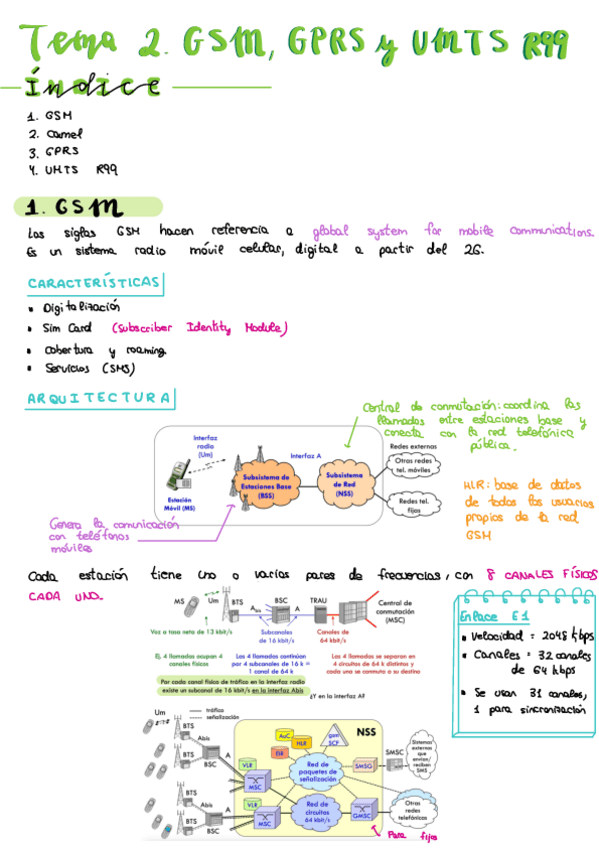 Tema 2. GSM, GPRS y UMTS R99
Índice
1. GSM
2. Camel
3. GPRS
4. UMTS R99
1. GSM
Las siglas GSM hacen referencia a global system for mobile communications.
Es un sistema radio móvil celular, digital a partir del 2G.
CARACTERÍSTICAS
• Digitalización
• Sim Card (Subscriber Identity Module)
• Cobertura y roaming
• Servicios (SMS)
ARQUITECTURA
Central de conmutación: coordina las
llamadas entre estaciones base y
conecta con la red telefónica
pública.
Interfaz
radio
(Um)
Interfaz A
Redes externas
Otras redes
tel. móviles
Subsistema de
Estaciones Base
(BSS)
Subsistema
de Red
(NSS)
Estación
Móvil (MS)
Redes tel.
fijas
HLR: base de datos
de todos los usuarios
propios de la red
GSM
Genera la comunicación
con teléfonos
móviles
Cada estación tiene uno o varios pares de frecuencias, con 8 CANALES FÍSICOS
CADA UNO.
MS Um BTS Abis BSC A TRAU Central de
conmutación
(MSC)
Voz a tasa neta de 13 kbit/s
Subcanales
de 16 kbit/s
Canales de
64 kbit/s
Ej. 4 llamadas ocupan 4
canales físicos
Las 4 llamadas continúan
por 4 subcanales de 16 k =
1 canal de 64 k
Las 4 llamadas se separan en
4 circuitos de 64 k distintos y
cada una se conmuta a su destino
Por cada canal físico de tráfico en la interfaz radio
existe un subcanal de 16 kbit/s en la interfaz Abis
¿Y en la interfaz A?
Enlace E1
• Velocidad = 2048 kbps
• Canales = 32 canales
de 64 kbps
• Se usan 31 canales,
1 para sincronización
tráfico
señalización
Um
BTS
Abis
BTS
BSC
A
VLR
MSC
AuC
HLR
EIR
gsm
SCF
NSS
Red de
paquetes de
señalización
SMSG
SMSC
Sistemas
externos
que
envían/
reciben
SMS
BTS
Abis
BTS
BSC
A
VLR
MSC
Red de
circuitos
64 kbit/s
GMSC
Otras
redes
telefónicas
Para fijos